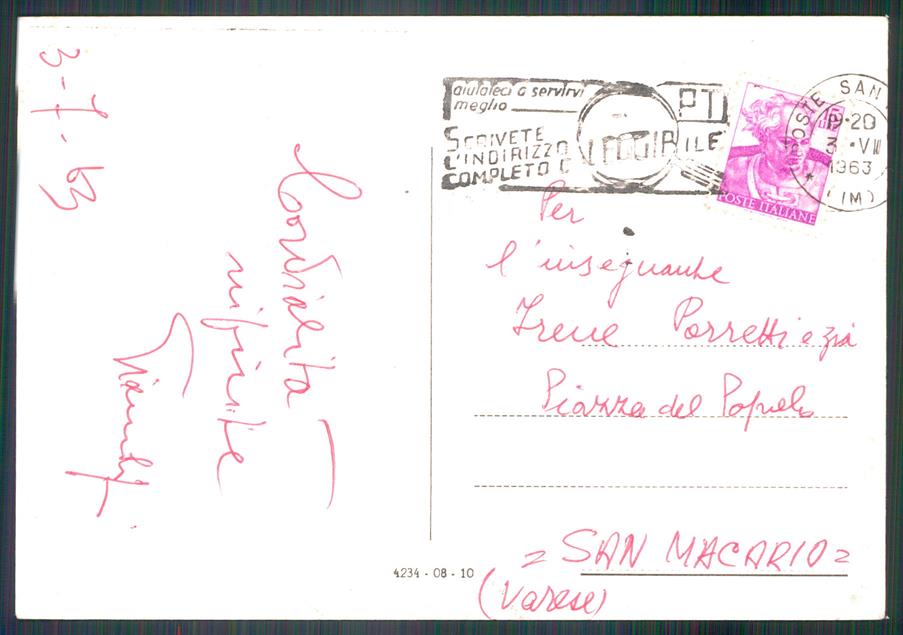 3-7-63
Cordialità
infinite
aiutateci a servirvi
meglio
PT
SCRIVETE
L'INDIRIZZO
COMPLETO E LEGGIBILE
POSTE ITALIANE
POSTE SAN
19·20
3 ·VII
1963
(IM)
Per
l'insegnante
Irene Porretti e zia
Piazza del Popolo
= SAN MACARIO =
(Varese)
4234 - 08 - 10